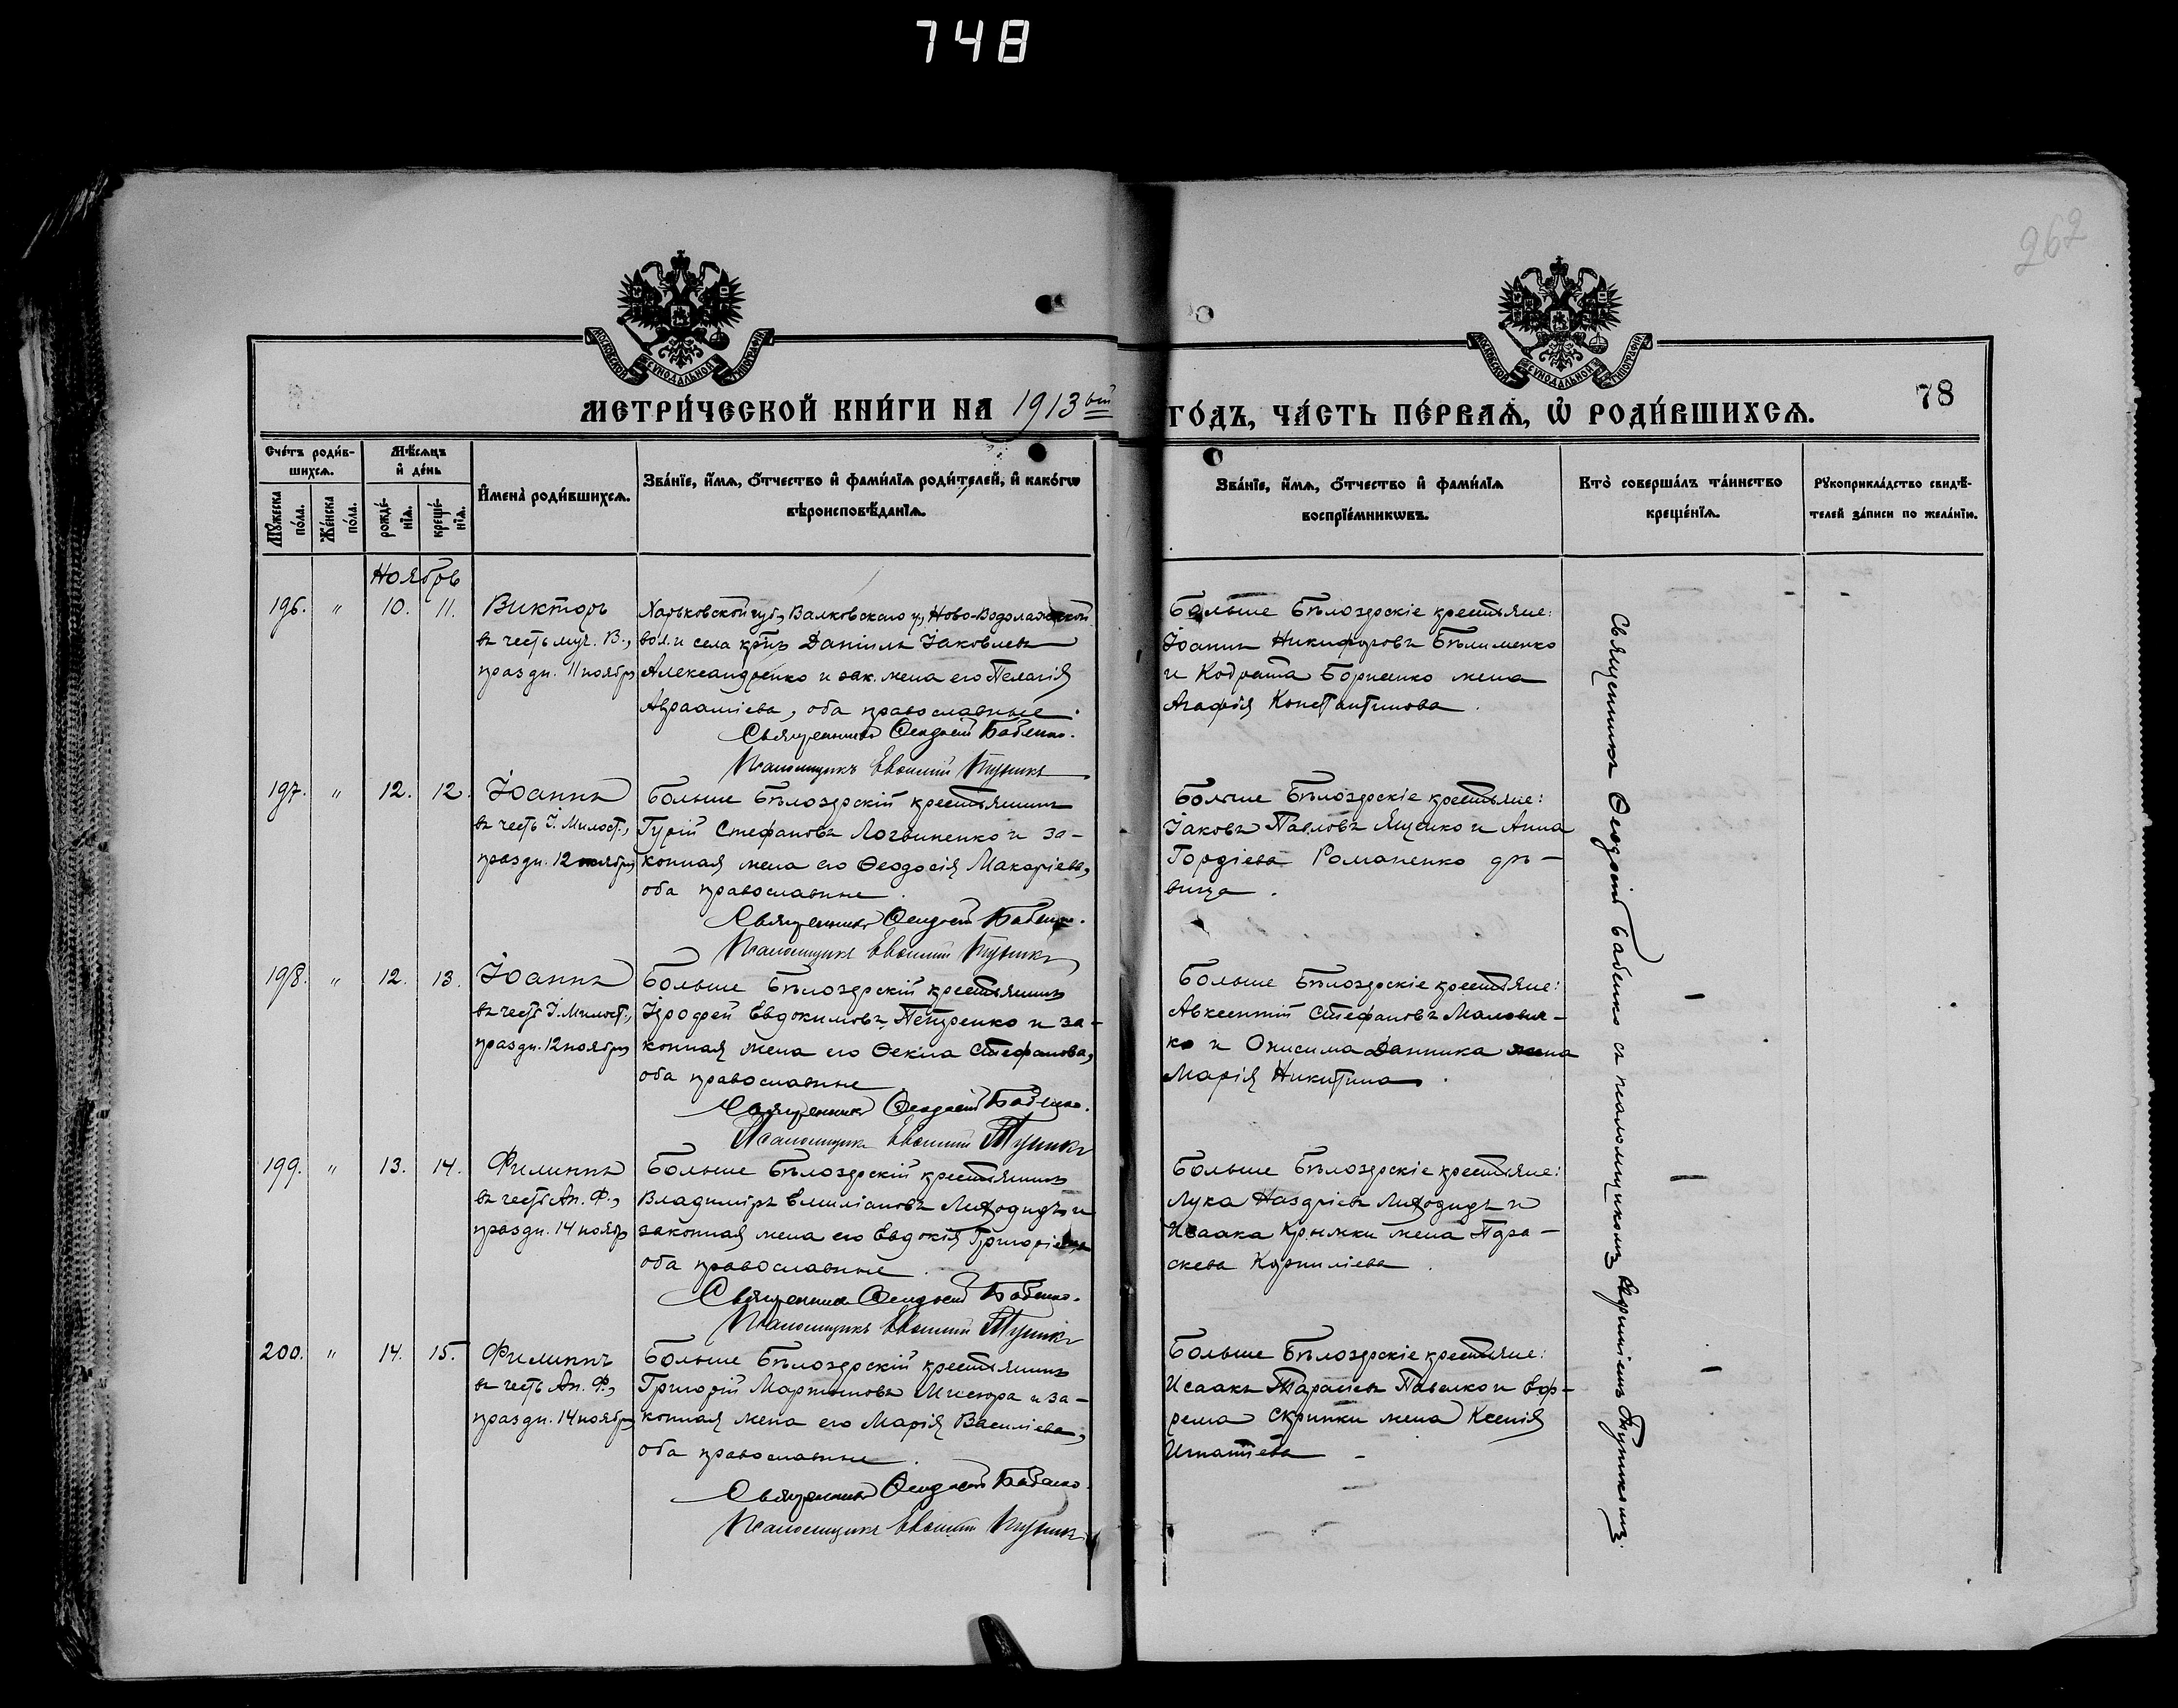 748
262
МОСКОВСКОЙ СѴНОДАЛЬНОЙ ТИПОГРАФІИ
МОСКОВСКОЙ СѴНОДАЛЬНОЙ ТИПОГРАФІИ
МЕТРИ́ЧЕСКОЙ КНИ́ГИ НА 1913ый
ГО́ДЪ, ЧА́СТЬ ПЕ́РВАѦ, Ѡ҆ РОДИ́ВШИХСѦ.
78
Сче́тъ роди́в-
шихсѧ.
Мѣ́сѧцъ
и҆ де́нь
Мꙋ́жеска
по́ла.
Же́нска
по́ла.
рожде́-
нїѧ.
креще́-
нїѧ.
И҆мена̀ роди́вшихсѧ.
Зва́нїе, и҆́мѧ, ѻ҆́тчество и҆ фами́лїѧ роди́телей, и҆ како́гѡ
вѣроисповѣ́данїѧ.
Зва́нїе, и҆́мѧ, ѻ҆́тчество и҆ фами́лїѧ
воспрїе́мникѡвъ.
Кто̀ соверша́лъ та́инство
креще́нїѧ.
Рꙋкоприкла́дство свидѣ́-
телей за́писи по жела́нїю.
Ноябрь
196. " 10. 11. Викторъ
въ честь муч. В.,
праздн. 11 ноября
Харьковской губ., Валковскаго у., Ново-Водолажской
вол. и села кр-нъ Даніилъ Іаковлевъ
Александренко и зак. жена его Пелагія
Авраамiева, оба православные.
Священникъ Ѳеодосій Бабенко.
Псаломщикъ Евѳимій Тупикъ
Больше Бѣлозерскіе крестьяне:
Іоаннъ Никифоровъ Бѣлименко
и Кодрата Борисенко жена
Агафія Константинова.
197. " 12. 12. Іоаннъ
въ честь І. Милост.,
праздн. 12 ноября
Больше Бѣлозерскій крестьянинъ
Гурій Стефановъ Логвиненко и за-
конная жена его Ѳеодосія Макаріева,
оба православные.
Священникъ Ѳеодосій Бабенко.
Псаломщикъ Евѳимій Тупикъ
Больше Бѣлозерскіе крестьяне:
Іаковъ Павловъ Ященко и Анна
Гордіева Романенко дѣ-
вица.
198. " 12. 13. Іоаннъ
въ честь І. Милост.,
праздн. 12 ноября
Больше Бѣлозерскій крестьянинъ
Іерофей Евдокимовъ Петренко и за-
конная жена его Ѳекла Стефанова,
оба православные
Священникъ Ѳеодосій Бабенко.
Псаломщикъ Евѳимій Тупикъ
Больше Бѣлозерскіе крестьяне:
Авксентій Стефановъ Малович-
ко и Онисима Данника жена
Марія Никитина.
199. " 13. 14. Филиппъ
въ честь Ап. Ф.,
праздн. 14 ноября
Больше Бѣлозерскій крестьянинъ
Владиміръ Емиліановъ Лиходидъ и
законная жена его Евдокія Григоріева
оба православные.
Священникъ Ѳеодосій Бабенко.
Псаломщикъ Евѳимій Тупикъ
Больше Бѣлозерскіе крестьяне:
Лука Наздріевъ Лиходидъ и
Исаака Крымки жена Пара-
скева Корниліева.
200. " 14. 15. Филиппъ
въ честь Ап. Ф.,
праздн. 14 ноября
Больше Бѣлозерскій крестьянинъ
Григорій Мартиновъ Мисюра и за-
конная жена его Марія Василіева,
оба православные.
Священникъ Ѳеодосій Бабенко
Псаломщикъ Евѳимій Тупикъ
Больше Бѣлозерскіе крестьяне:
Исаакъ Тарасіевъ Павелко и Еф-
рема Скрипки жена Ксенія
Игнатіева
Священникъ Ѳеодосій Бабенко съ псаломщикомъ Евѳиміемъ Тупикомъ.